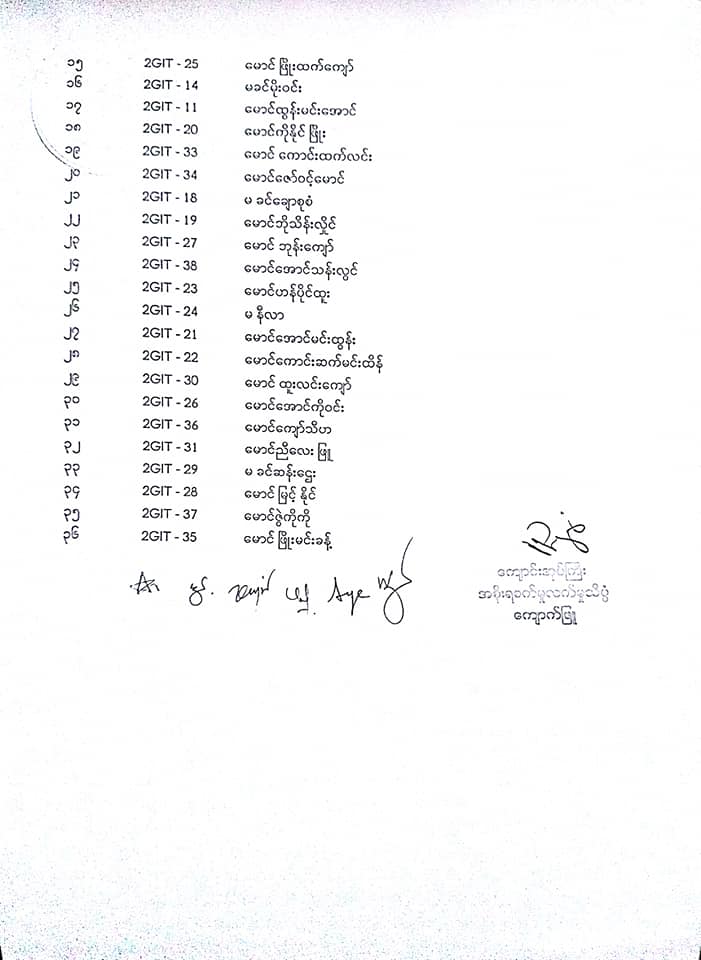 ၁၅ 2GIT - 25 မောင် ဖြိုးထက်ကျော်
၁၆ 2GIT - 14 မခင်မိုးဝင်း
၁၇ 2GIT - 11 မောင်ထွန်းမင်းအောင်
၁၈ 2GIT - 20 မောင်ကိုနိုင် ဖြိုး
၁၉ 2GIT - 33 မောင် ကောင်းထက်လင်း
၂၀ 2GIT - 34 မောင်ဇော်ဝင့်မောင်
၂၁ 2GIT - 18 မ ခင်ချောစုစံ
၂၂ 2GIT - 19 မောင်ဘိုသိန်းလှိုင်
၂၃ 2GIT - 27 မောင် ဘုန်းကျော်
၂၄ 2GIT - 38 မောင်အောင်သန်းလွင်
၂၅ 2GIT - 23 မောင်ဟန်ပိုင်ထူး
၂၆ 2GIT - 24 မ နီလာ
၂၇ 2GIT - 21 မောင်အောင်မင်းထွန်း
၂၈ 2GIT - 22 မောင်ကောင်းဆက်မင်းထိန်
၂၉ 2GIT - 30 မောင် ထူးလင်းကျော်
၃၀ 2GIT - 26 မောင်အောင်ကိုဝင်း
၃၁ 2GIT - 36 မောင်ကျော်သီဟ
၃၂ 2GIT - 31 မောင်ညီလေး ဖြူ
၃၃ 2GIT - 29 မ ခင်ဆန်းဌေး
၃၄ 2GIT - 28 မောင် မြင့် နိုင်
၃၅ 2GIT - 37 မောင်ဇွဲကိုကို
၃၆ 2GIT - 35 မောင် ဖြိုးမင်းခန့်
Aye
ကျောင်းအုပ်ကြီး
အစိုးရစက်မှုလက်မှုသိပ္ပံ
ကျောက်ဖြူ